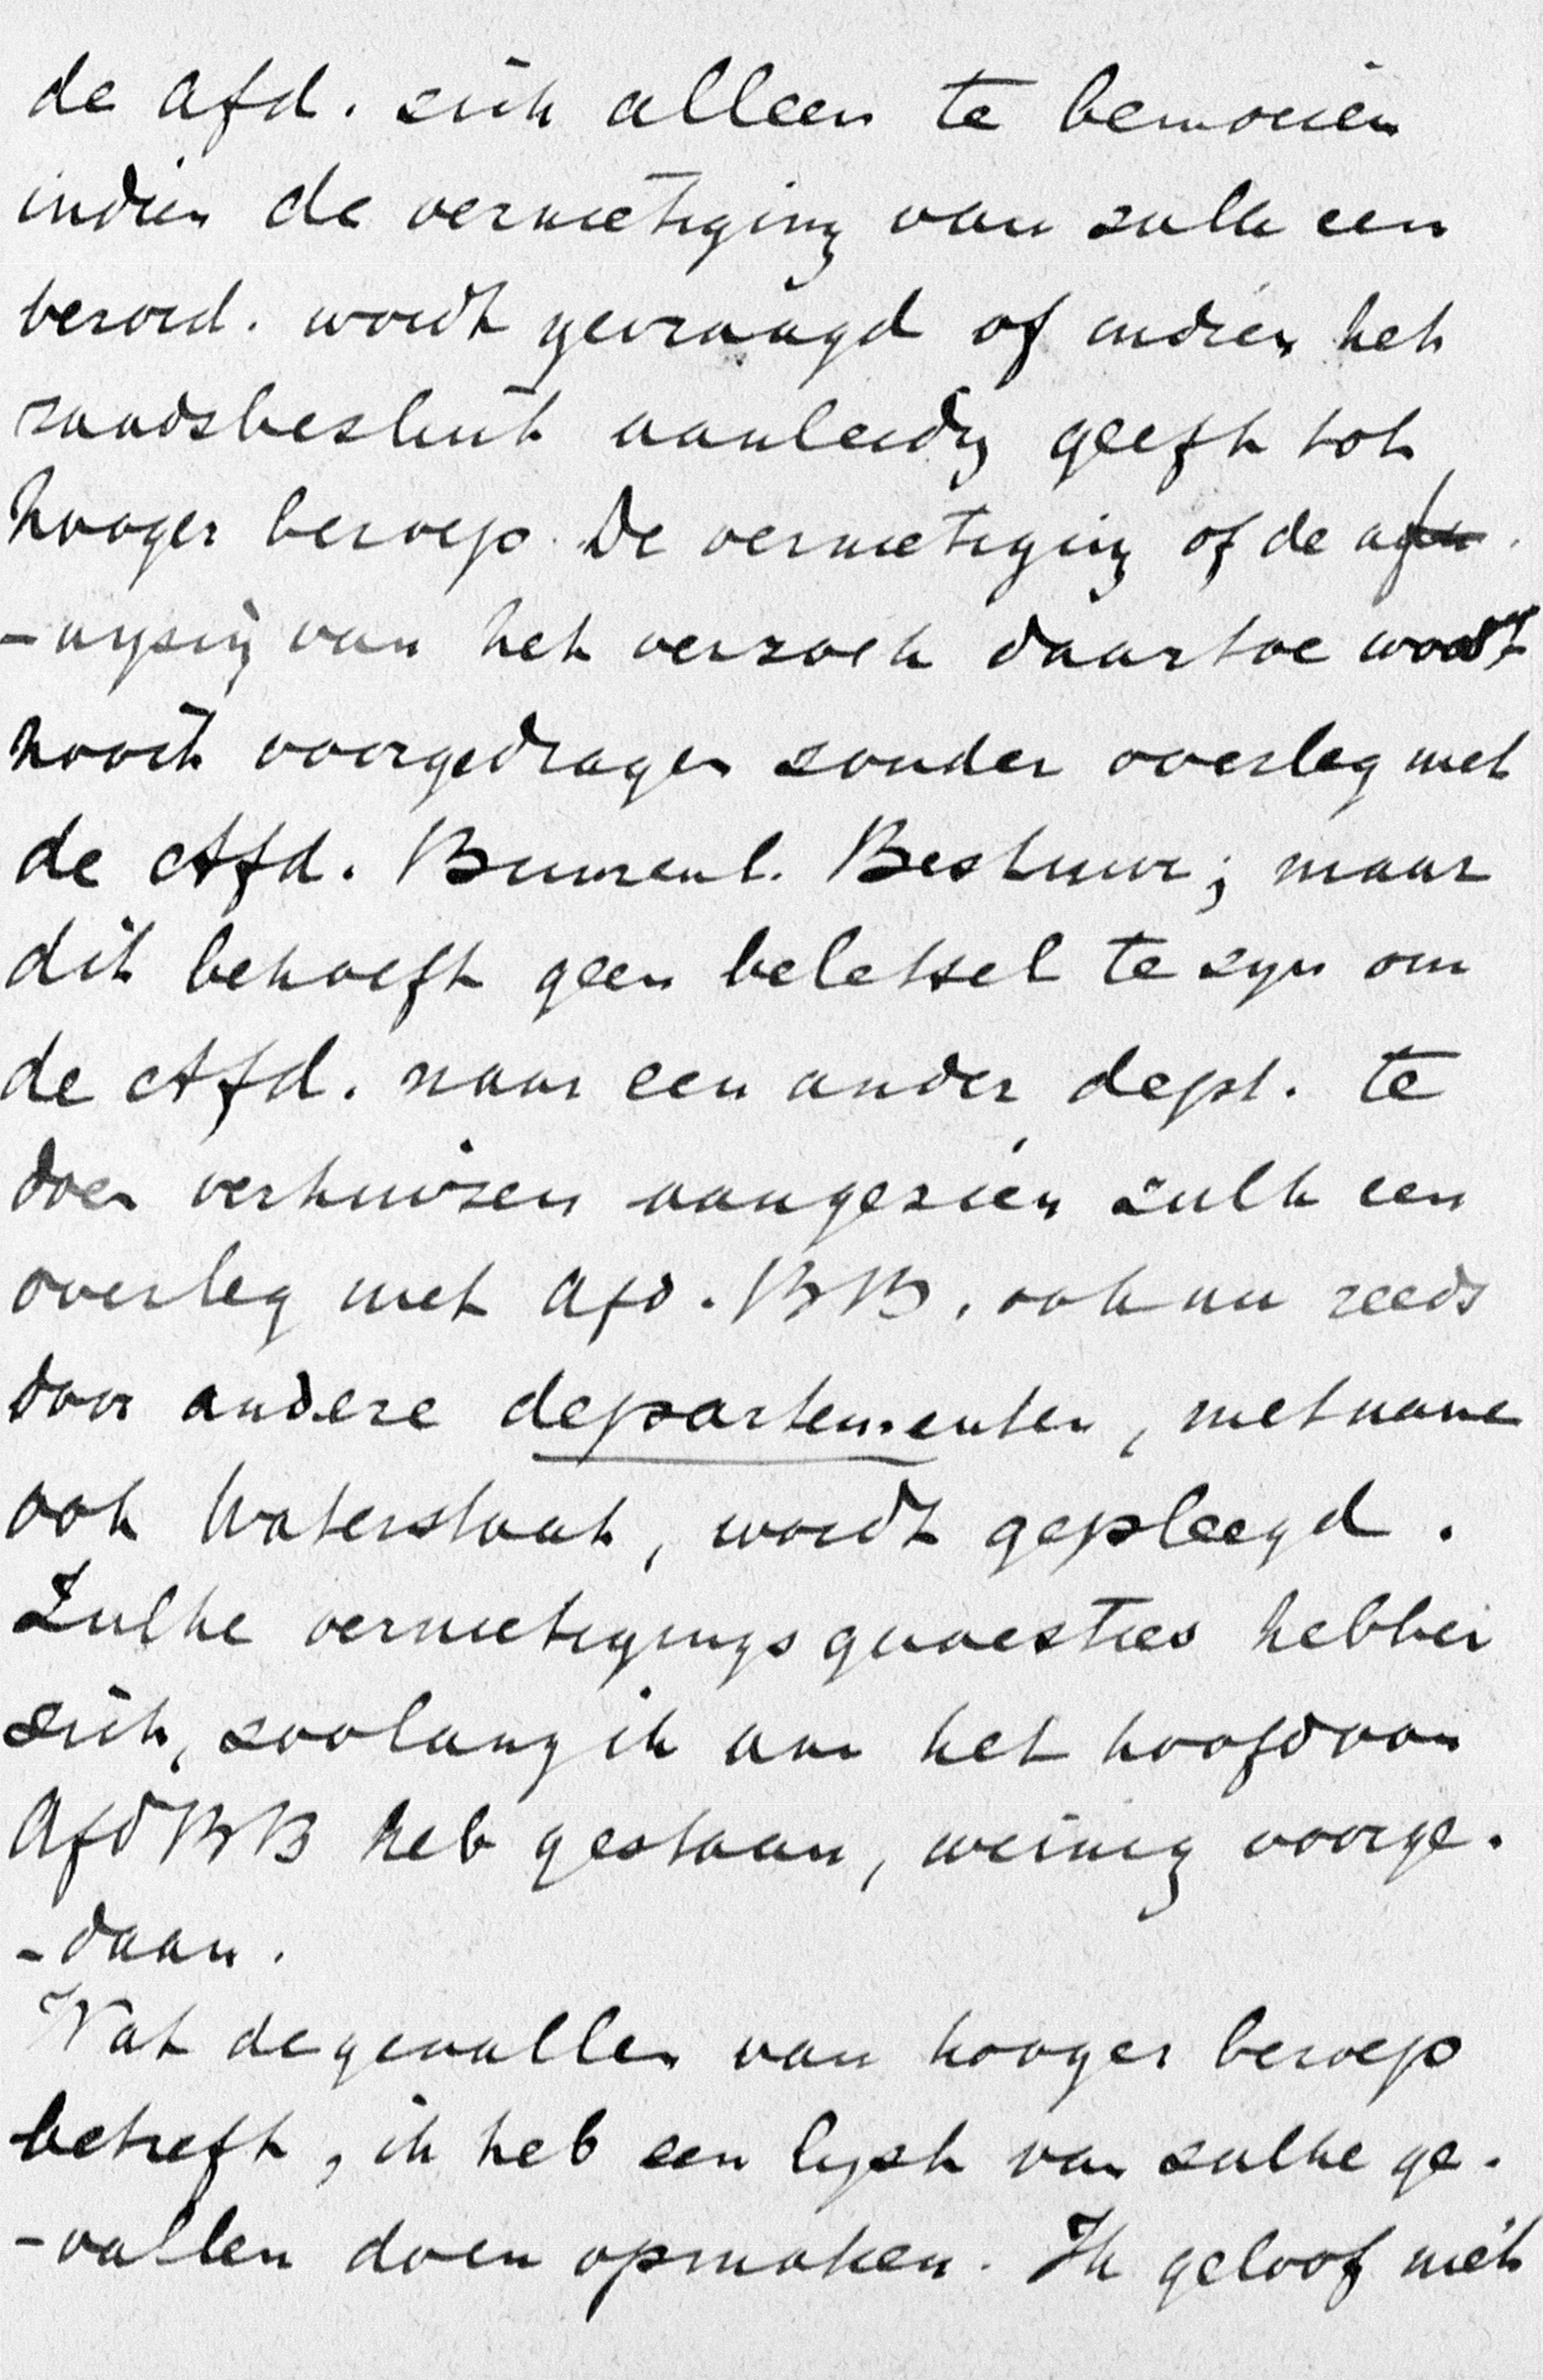 de Afd. zich alleen te bemoeien
indien de vernietiging van zulk een
verord. wordt gevraagd of indien het
raadsbesluit aanleidg geeft tot
hooger beroep. De vernietiging of de af
-wijzing van het verzoek daartoe wordt
nooit voorgedragen zonder overleg met
de Afd. Binnenl. Bestuur; maar
dit behoeft geen beletsel te zijn om
de Afd. naar een ander dept. te
doen verhuizen aangezien zulk een
overleg met Afd. BB. ook nu reeds
door andere departementen, met name
ook Waterstaat, wordt gepleegd.
Zulke vernietigingsquaesties hebben
zich, zoolang ik aan het hoofd van
Afd BB heb gestaan, weinig voorge-
-daan.
Wat de gevallen van hooger beroep
betreft, ik heb een lijst van zulke ge-
-vallen doen opmaken. Ik geloof niet